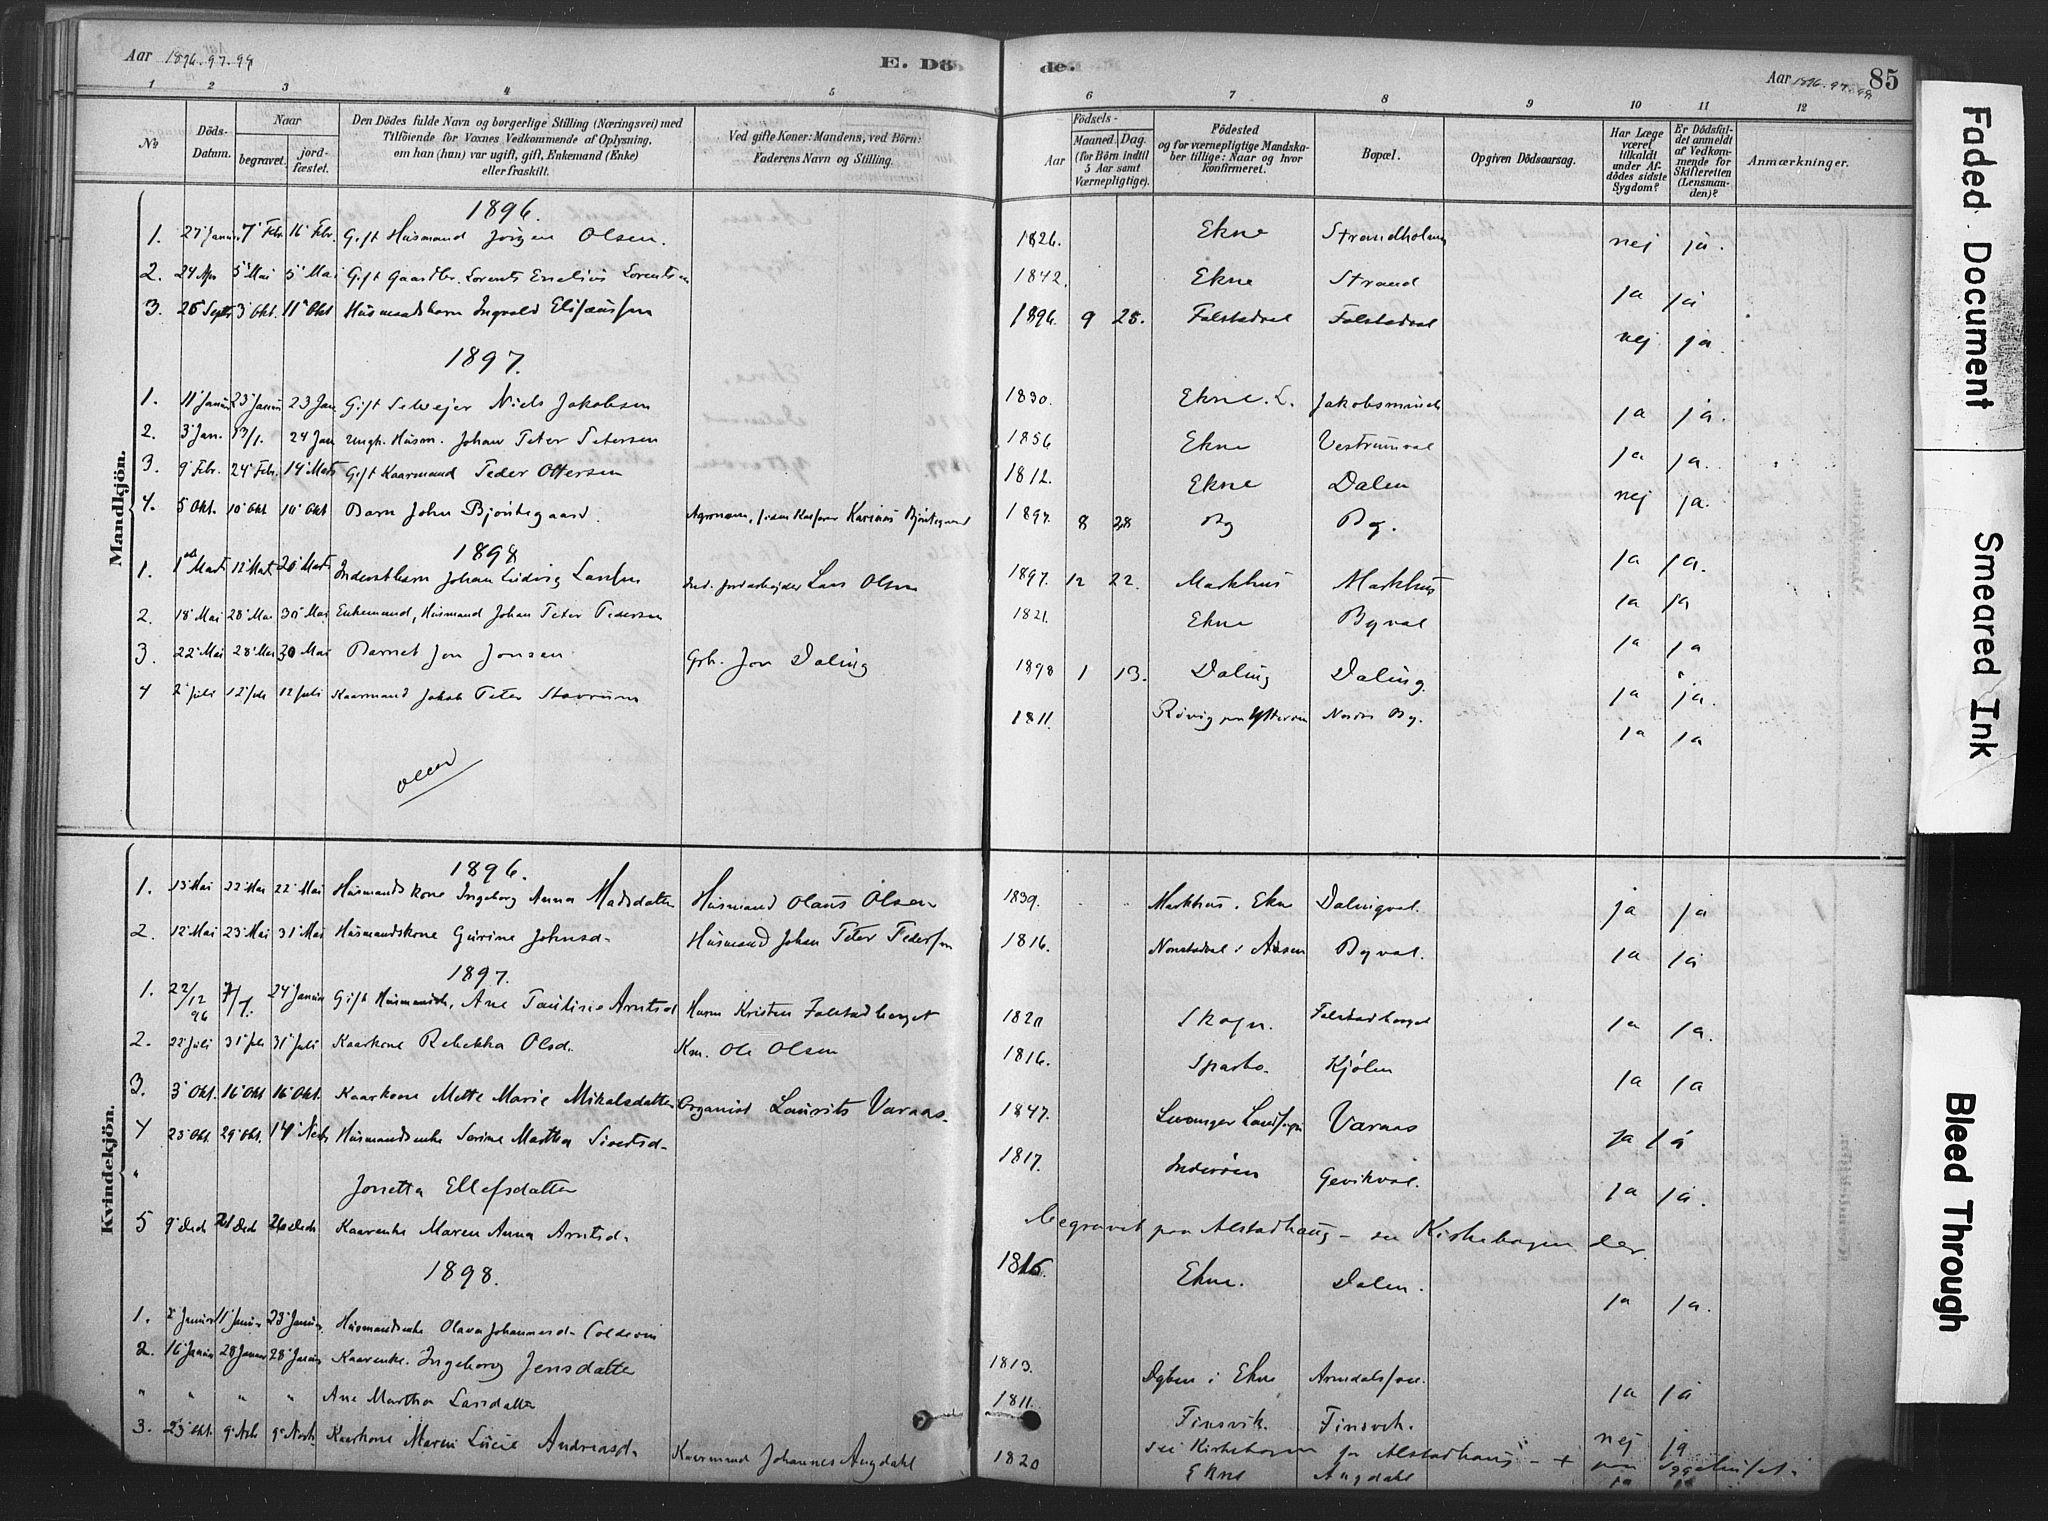 Aar 1896.97.98 E. Dö de. Aar 1896.97.98 85
1 2 3 4 5 6 7 8 9 10 11 12
No Döds-Datum. Naar begravet. jord-fæstet. Den Dödes fulde Navn og borgerlige Stilling (Næringsvei) med Tilföiende for Voxnes Vedkommende af Oplysning, om han (hun) var ugift, gift, Enkemand (Enke) eller fraskilt. Ved gifte Koner: Mandens, ved Börn: Faderens Navn og Stilling. Födsels- Aar Maaned. Dag. (for Börn indtil 5 Aar samt Værnepligtige). Födested og for værnepligtige Mandskaber tillige: Naar og hvor konfirmeret. Bopæl. Opgiven Dödsaarsag. Har Læge været tilkaldt under Afdödes sidste Sygdom? Er Dödsfaldet anmeldt af Vedkommende for Skifteretten (Lensmanden)? Anmærkninger.
Mandkjön.
1896.
1. 27 Januar 7 Febr. 16 Febr. Gift Husmand Jörgen Olsen. 1826. Ekne Strandholmen nej ja.
2. 24 Apr 5 Mai 5 Mai Gift Gaardbr. Lorents Enelius Lorentsen 1842. Ekne Strand ja ja
3. 26 Septb 3 Okt. 11 Okt Husmandsbarn Ingvald Elisæussen 1896. 9 25. Falstadval Falstadval nej ja.
1897.
1. 11 Januar 23 Januar 23 Jan Gift Selvejer Niels Jakobsen 1830. Ekne. L. Jakobsminde ja ja.
2. 3 Jan. 13/1. 24 Jan Ungk. Husm. Johan Peter Petersen 1856 Ekne Vestrumval ja ja.
3. 9 Febr. 24 Febr. 14 Marts Gift Kaarmand Peder Ottersen 1812. Ekne Dalen nej ja.
4. 5 Okt. 10 Okt 10 Okt Barn John Bjørstegaard. Karinus 1897. 8 28 By By. ja ja.
1898
1. 1 Marts 12 Mart 20 Marts Inderstbarn Johan Ludvig Larsen Lars Olsen 1897. 12 22. Markhus Markhus ja ja
2. 18 Mai 28 Mai 30 Mai Enkemand, Husmand Johan Peter Pedersen 1821. Ekne Byval ja ja
3. 22 Mai 28 Mai 30 Mai Barnet Jon Jonsen Grb. Jon Daling 1898 1 13. Daling Daling. ja ja.
4 2 Juli 12 Juli 12 Juli Kaarmand Jakob Peter Stavrum 1811. Rövig paa Ytterøen Nordre By. ja ja
Kvindekjön.
1896.
1. 13 Mai 22 Mai 22 Mai Husmandskone Ingeborg Anna Madsdatter Husmand Olaus Olsen 1839. Markhus. Ekne Dalingval. ja ja
2. 12 Mai 23 Mai 31 Mai Husmandskone Gurine Johnsd. Husmand Johan Peter Pedersen 1816. i Aasen Byval. ja ja
1897.
1. 22/12 96 7/1. 24 Januar Gift Husmandsk. Ane Pauline Arntsd Husm Kristen Falstadberget 1820 Skogn. Falstadberget ja ja.
2. 22 Juli 31 Juli 31 Juli Kaarkone Rebekka Olsd. Km. Ole Olsen 1816. Sparbo. Kjölen ja ja
3. 3 Okt. 16 Okt 16 Okt. Kaarkone Mette Marie Mikalsdatter Organist Laurits Varaas. 1847. Levanger Landsogn Varaas ja ja
4 25 Okt. 29 Okt. 14 Novb Husmandsenke Serine Martha Sivertsd. 1817. Inderöen Gevikval. ja ja.
" Jonetta Ellefsdatter Begravet paa Alstadhaug - se Kirkebogen der.
5 9 Decb 21 Decb 26 Decb Kaarenke Maren Anna Arntsd. 1816. Ekne. Dalen. ja ja.
1898.
1. 2 Januar 11 Januar 23 Januar. Husmandsenke Olava Johannesd. Colderin 1813. i Ekne ja ja
2. 16 Januar 28 Januar 28 Januar Kaarenke. Ingeborg Jensdatter 1811. Finsvik. Finsvik. nej ja
" " " " Ane Martha Larsdatter se Kirkebogen for Alstadhaug -
3. 23 Okt. 9 Novb 9 Novb. Kaarkone Maren Lucie Andreasd. Kaarmand Johannes Augdahl 1820 Ekne Augdahl ja ja
Faded Document
Smeared Ink
Bleed Through